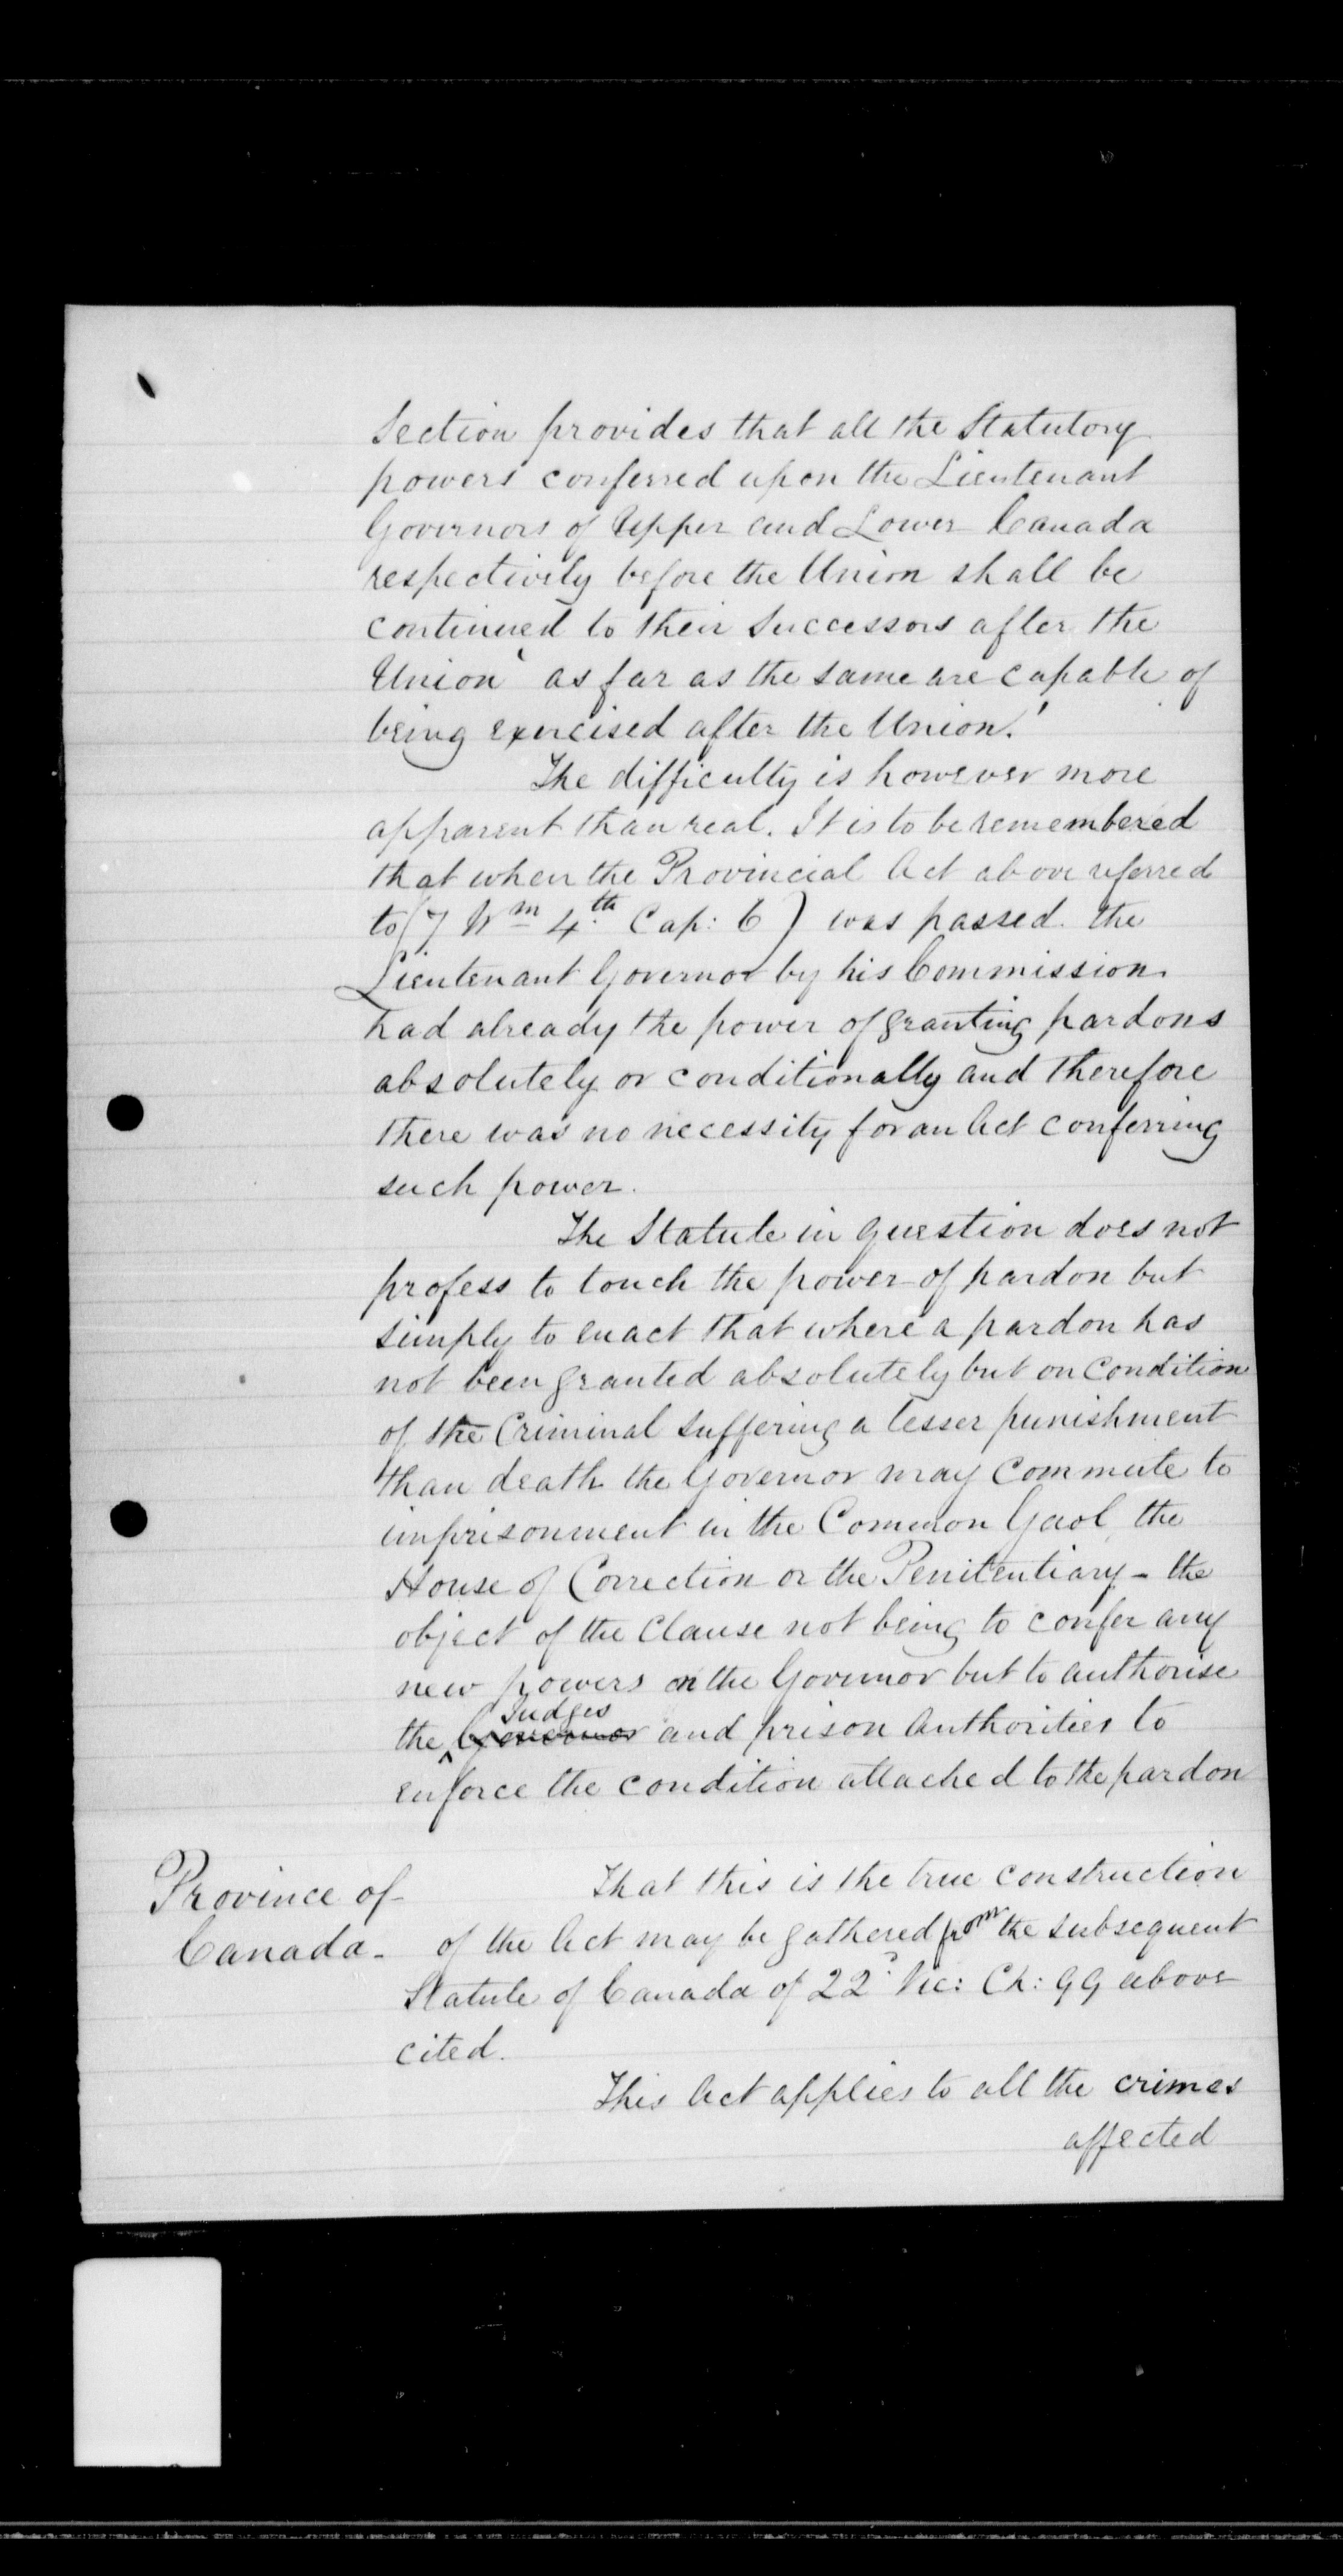 Section provides that all the Statutory
powers conferred upon the Lieutenant
Governors of Upper and Lower Canada
respectively before the Union shall be
continued to their Successors after the
Union 'as far as the same are capable of
being exercised after the Union.'
The difficulty is however more
apparent than real. It is to be remembered
that when the Provincial Act above referred
to (7 Wm 4th Cap: 6) was passed the
Lieutenant Governor by his Commission
had already the power of granting pardons
absolutely or conditionally and therefore
there was no necessity for an Act conferring
such power.
The Statute in question does not
profess to touch the power of pardon but
simply to enact that where a pardon has
not been granted absolutely but on condition
of the Criminal suffering a lesser punishment
than death the Governor may commute to
imprisonment in the Common Gaol, the
House of Correction or the Penitentiary - the
object of the Clause not being to confer any
new powers on the Governor but to authorise
the Judges Governor and prison Authorities to
enforce the condition attached to the pardon
Province of
Canada -
That this is the true construction
of the Act may be gathered from the subsequent
Statute of Canada of 22 Vic: Ch: 99 above
cited.
This Act applies to all the crimes
affected